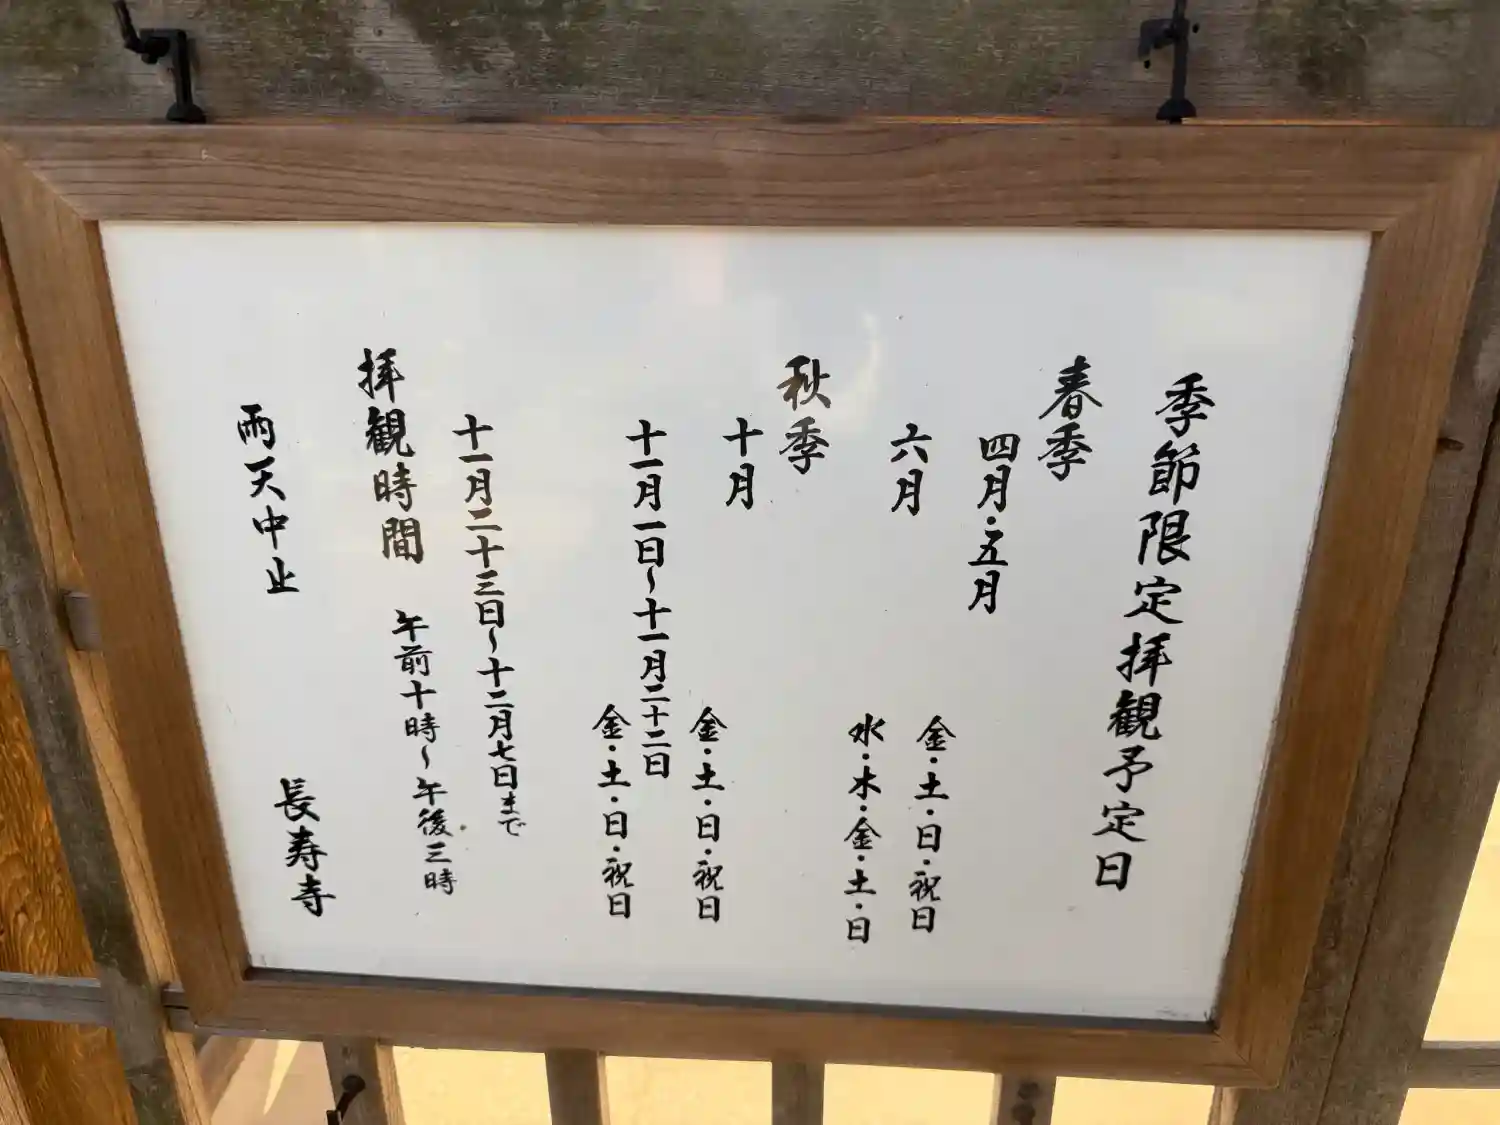 季節限定拝観予定日
春季
四月・五月 金・土・日・祝日
六月 水・木・金・土・日
秋季
十月 金・土・日・祝日
十一月一日〜十一月二十二日 金・土・日・祝日
十一月二十三日〜十二月七日まで
拝観時間 午前十時〜午後三時
雨天中止 長寿寺